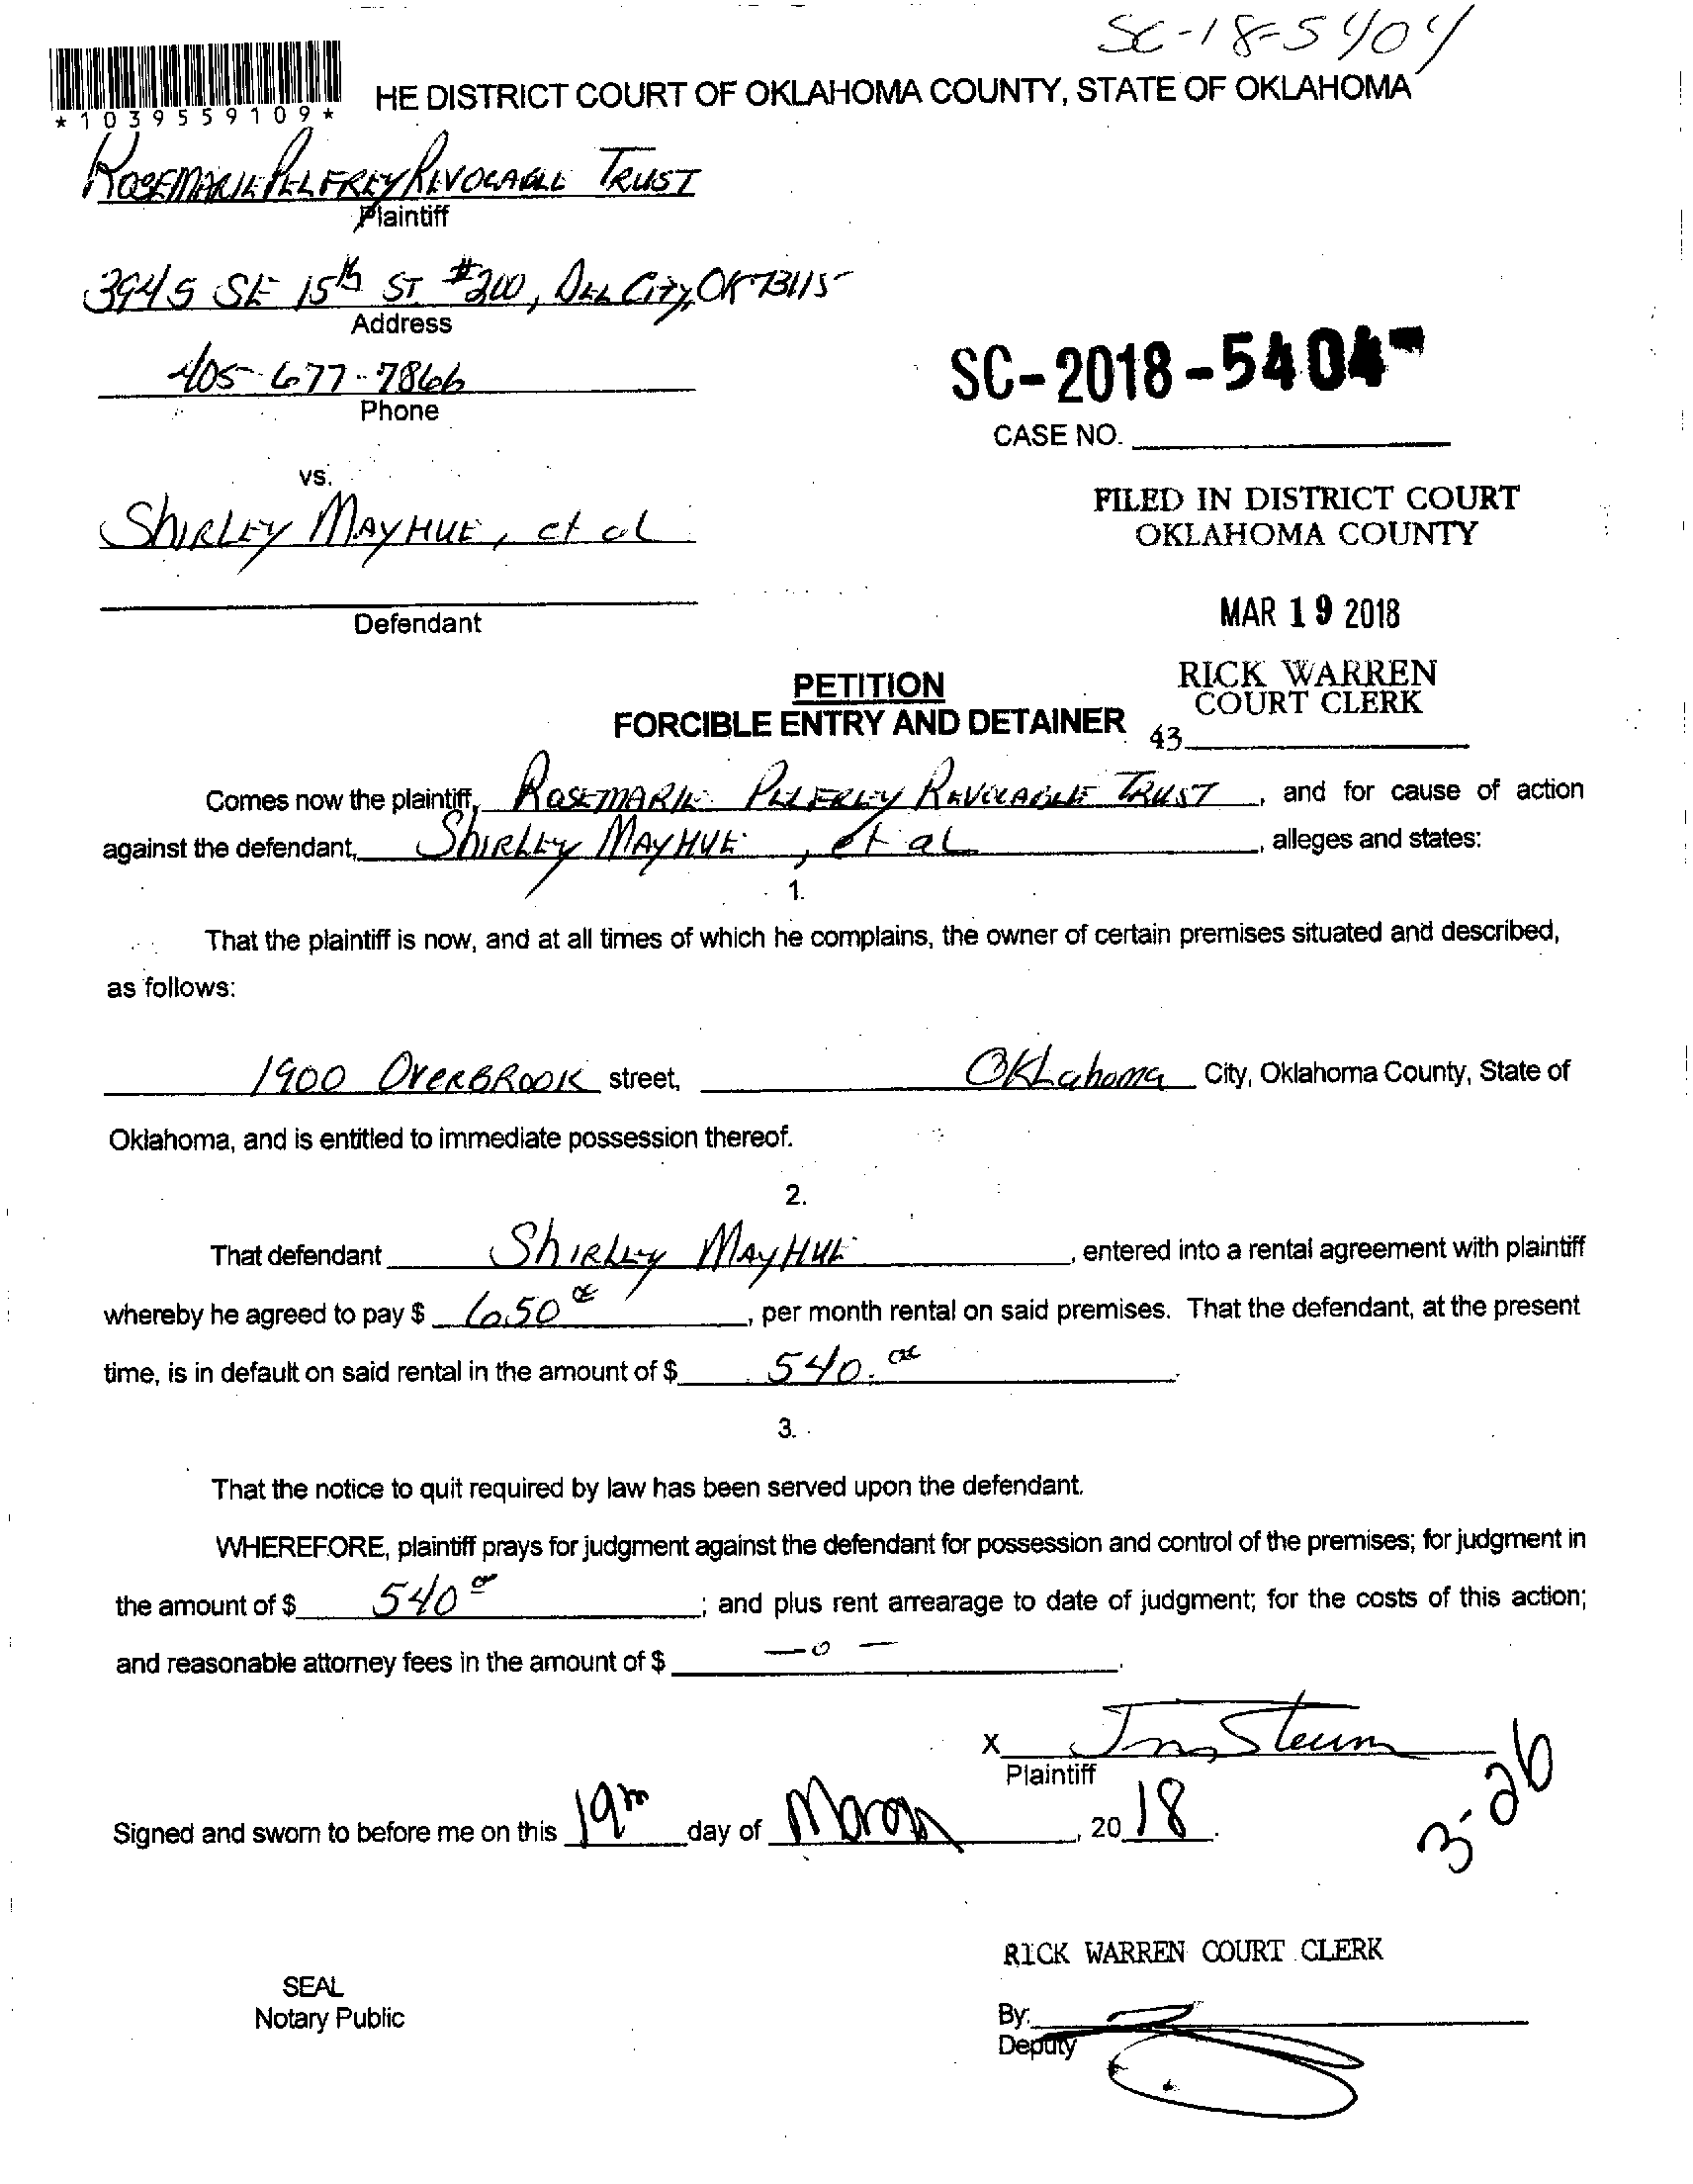 SC-18-5404
HE DISTRICT COURT OF OKLAHOMA COUNTY, STATE OF OKLAHOMA
*1039559109*
ROSEMARIE PELFREY REVOCABLE TRUST
Plaintiff
3945 SE 15th ST #200, DEL CITY, OK 73115
Address
405-677-7866
Phone
SC-2018-5404
CASE NO.
vs.
SHIRLEY MAYHUE, et al
FILED IN DISTRICT COURT
OKLAHOMA COUNTY
Defendant
MAR 19 2018
PETITION
RICK WARREN
COURT CLERK
FORCIBLE ENTRY AND DETAINER
43
Comes now the plaintiff, ROSEMARIE PELFREY REVOCABLE TRUST, and for cause of action
against the defendant, SHIRLEY MAYHUE, et al, alleges and states:
1.
That the plaintiff is now, and at all times of which he complains, the owner of certain premises situated and described,
as follows:
1900 OVERBROOK street, Oklahoma City, Oklahoma County, State of
Oklahoma, and is entitled to immediate possession thereof.
2.
That defendant SHIRLEY MAYHUE, entered into a rental agreement with plaintiff
whereby he agreed to pay $ 650 00, per month rental on said premises. That the defendant, at the present
time, is in default on said rental in the amount of $ 540.00.
3.
That the notice to quit required by law has been served upon the defendant.
WHEREFORE, plaintiff prays for judgment against the defendant for possession and control of the premises; for judgment in
the amount of $ 540 00; and plus rent arrearage to date of judgment; for the costs of this action;
and reasonable attorney fees in the amount of $ -0-.
X
Plaintiff
Signed and sworn to before me on this 19th day of March, 2018.
3-26
RICK WARREN COURT CLERK
SEAL
Notary Public
By:
Deputy